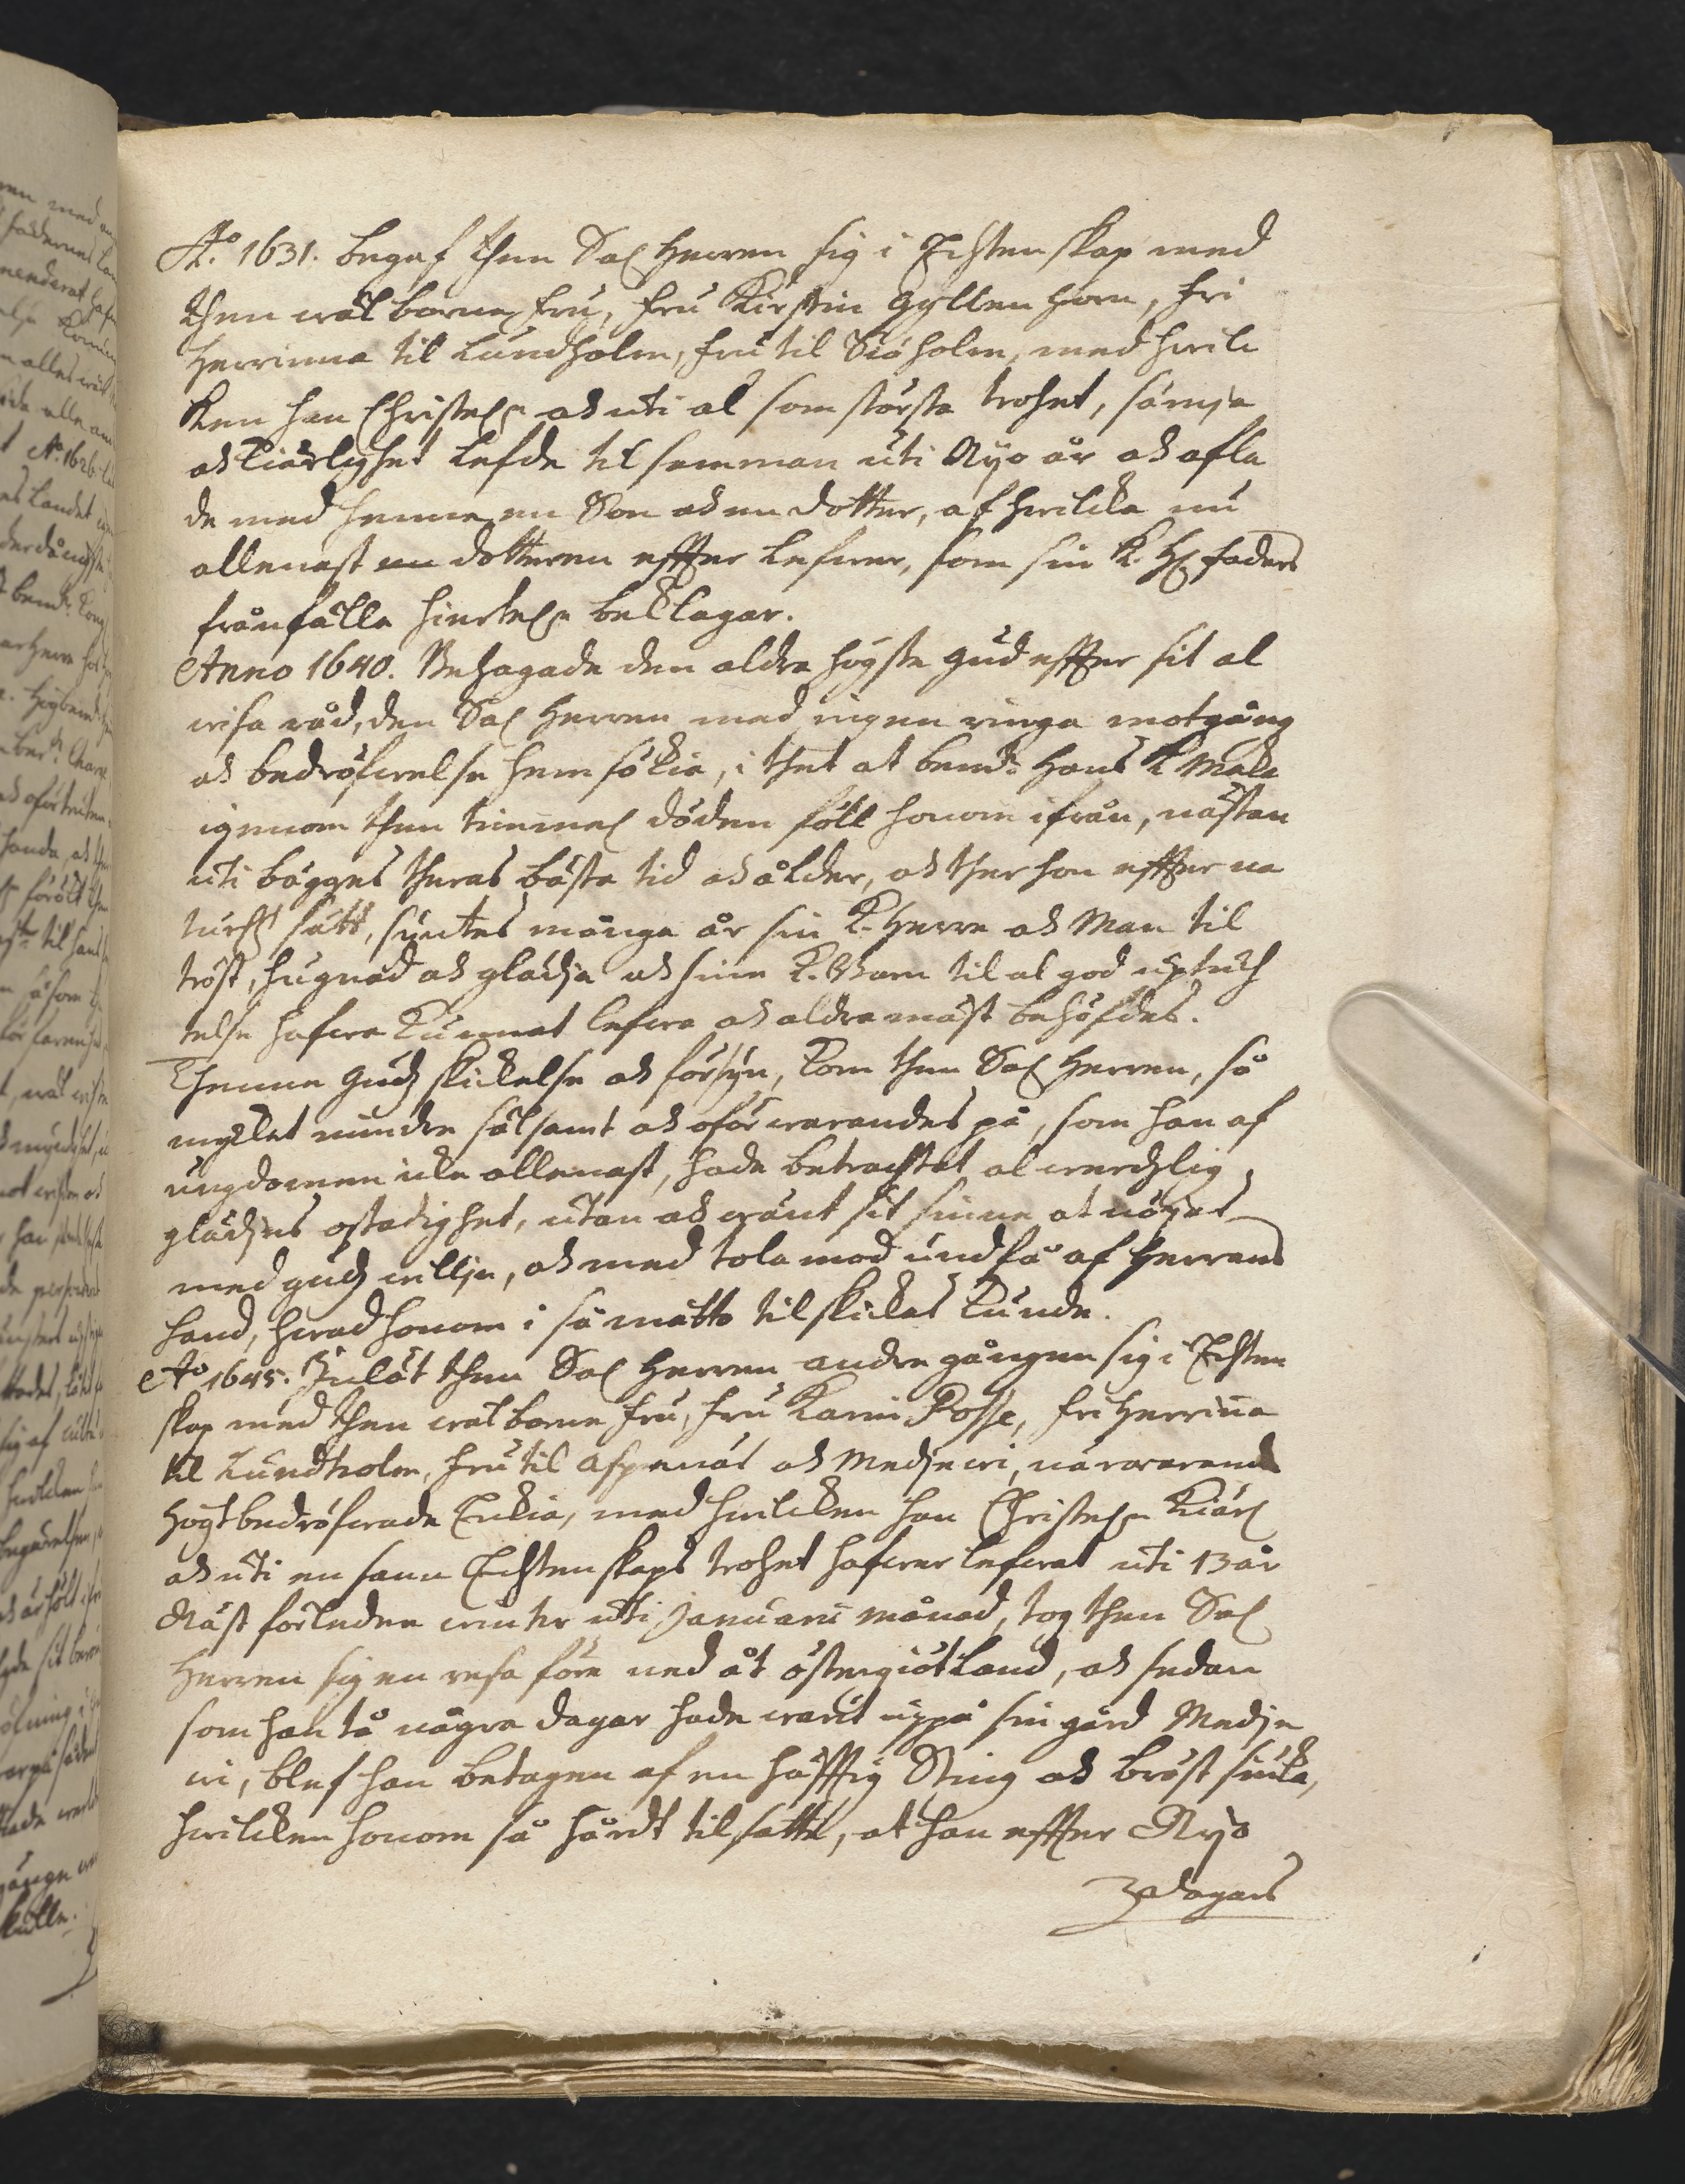 A:o 1631. begaf then Sal Herren sig i Echtenskap med
then wälborne fru, fru Kirstin Gyllenhorn, fri
herrinna til Lundholm, fru til Siöholm, med hwilc
ken han Christel:n och uti al som största trohet, sämja
och kiärlighet lefde tilsamman uti Nijo år och afla
de med henne en Son och en dotter, af hwilcka nu
allenast en dotteren effter lefwer, som sin K. H. faders
frånfälle hiertel:n beklagar.
Anno 1640. Behagade den aldra högste Gud effter sit al
wisa råd, den Sal Herren med ingen ringa motgång
och bedröfwelse hemsökia, i thet at bem:te hans K Maka
igenom then timmel döden föll honom ifrån, nästan
uti bägges theras bästa tid och ålder, och ther hon effter na
turl:t sätt, syntes många år sin K. Herre och Man til
tröst, hugnad och glädje och sine K. Barn til al god uptuch
telse hafwa kunnat lefwa och aldramäst behöfdes.
Thenne Gudz skickelse och försyn, kom then Sal Herren, så
mycket mindre sälsamt och oförwarandes på, som han af
ungdomen icke allenast, hade betrachtet al werdzlig
glädjens ostadighet, utan och wänt sit sinne at nöijas
med gudz willje, och med tolamod undfå af Herrans
hand, hwad honom i så måtto tilskickas kunde.
A:o 1645. Inlät then Sal Herren andre gången sig i Echten
skap med then wälborne fru, fru Karin Posse, friherrinna
til Lundholm, fru til Aspenäs och Medjewi, närwarande
högtbedröfwade Enkia, med hwilcken han Christel:n kiärl
och uti en sann Echtenskaps trohet hafwer lefwat uti 13 år
Näst förledne winter uti Januarii månad, tog then Sal
Herren sig en resa före ned åt östergiötland, och sedan
som han tå några dagar hade warit uppå sin gård Medje
wi, blef han betagen af en häfftig Sting och bröst siuka,
hwilcken honom så hårdt tilsatte, at han effter Nijo
dagars